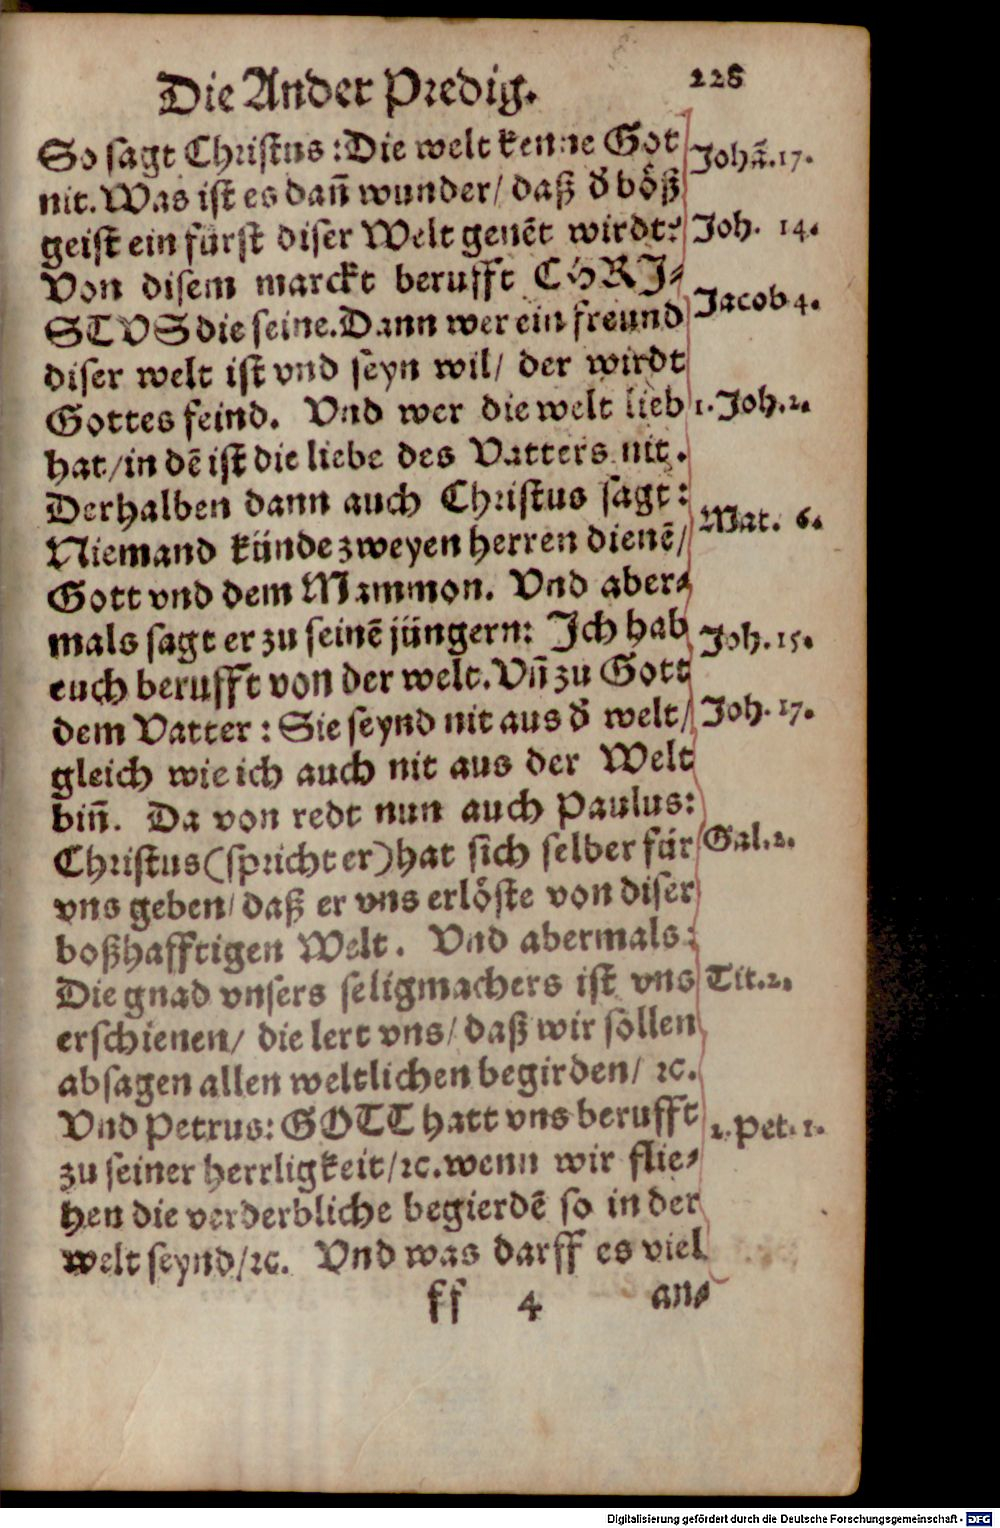 Die Ander Predig. 228
So sagt Christus: Die welt kenne Got
Johã. 17.
nit. Was ist es dañ wunder/ daß d̕ böß
geist ein fürst diser Welt genēt wirdt?
Joh. 14.
Von disem marckt berufft CHRJ-
STVS die seine. Dann wer ein freund
Jacob 4.
diser welt ist vnd seyn wil/ der wirdt
Gottes feind. Vnd wer die welt lieb
1. Joh. 2.
hat/ in dē ist die liebe des Vatters nit.
Derhalben dann auch Christus sagt:
Mat. 6.
Niemand künde zweyen herren dienē/
Gott vnd dem Mammon. Vnd aber-
mals sagt er zu seinē jüngern: Jch hab
Joh. 15.
euch berufft von der welt. Vñ zu Gott
dem Vatter: Sie seynd nit aus d̕ welt/
Joh. 17.
gleich wie ich auch nit aus der Welt
biñ. Da von redt nun auch Paulus:
Christus (spricht er) hat sich selber für
Gal. 2.
vns geben/ daß er vns erlöste von diser
boßhafftigen Welt. Vnd abermals:
Die gnad vnsers seligmachers ist vns
Tit. 2.
erschienen/ die lert vns/ daß wir sollen
absagen allen weltlichen begirden/ ꝛc.
Vnd Petrus: GOTT hatt vns berufft
2. Pet. 1.
zu seiner herrligkeit/ ꝛc. wenn wir flie-
hen die verderbliche begierdē so in der
welt seynd/ ꝛc. Vnd was darff es viel
ff 4 an-
Digitalisierung gefördert durch die Deutsche Forschungsgemeinschaft - DFG